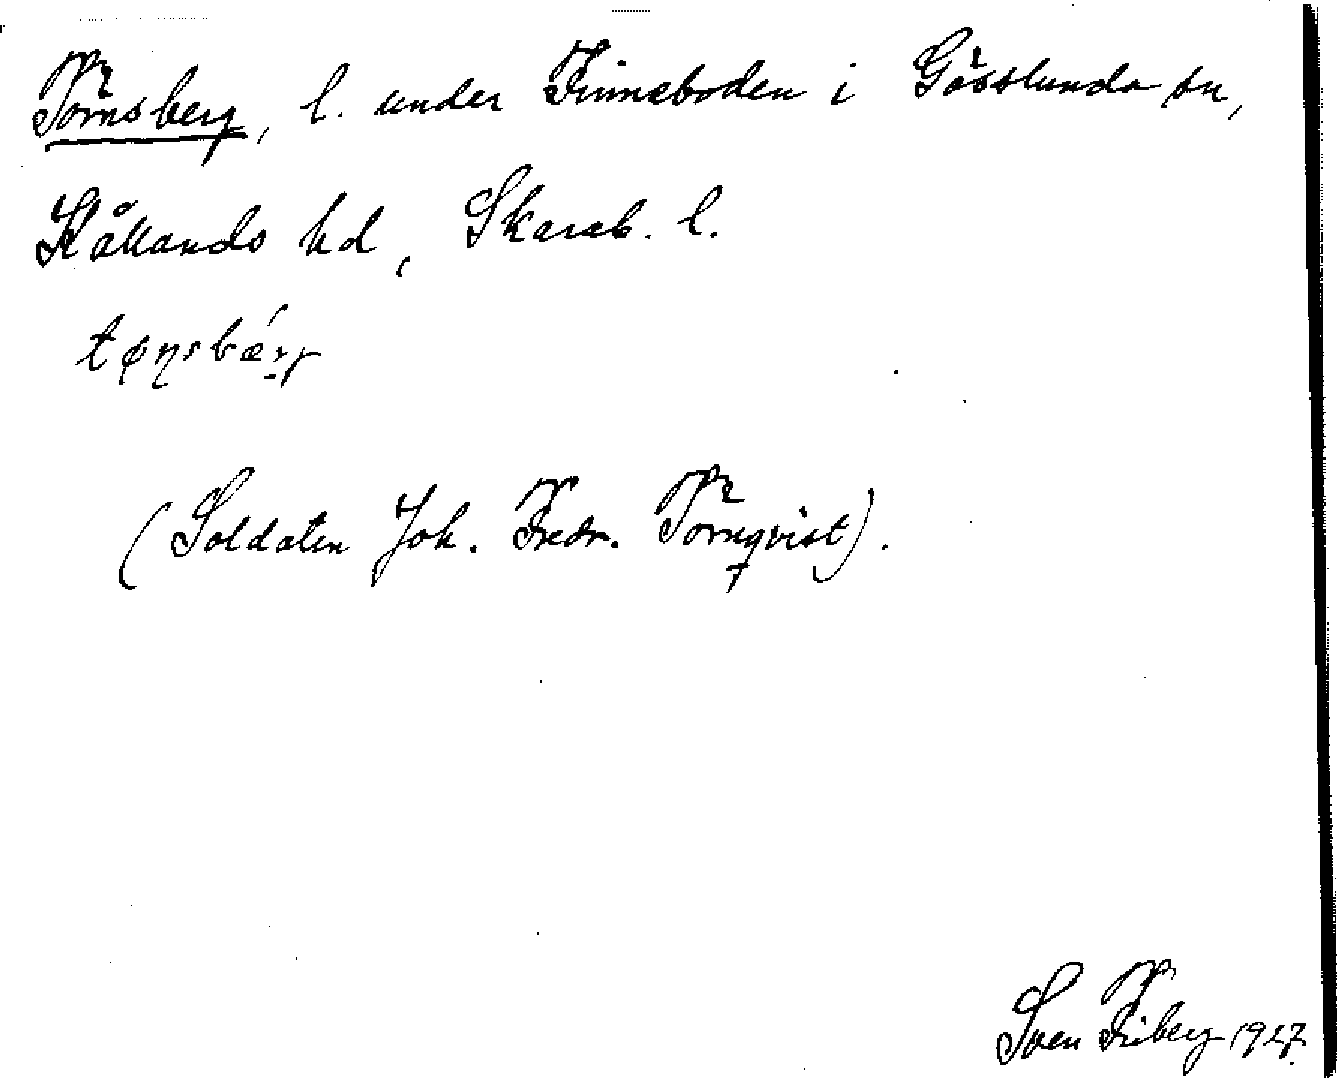 Törnsberg, l. under Finneboden i Gösslunda sn,
Kållands hd, Skarab. l.
(Soldaten Joh. Fredr. Törnqvist).
Sven Friberg 1927.